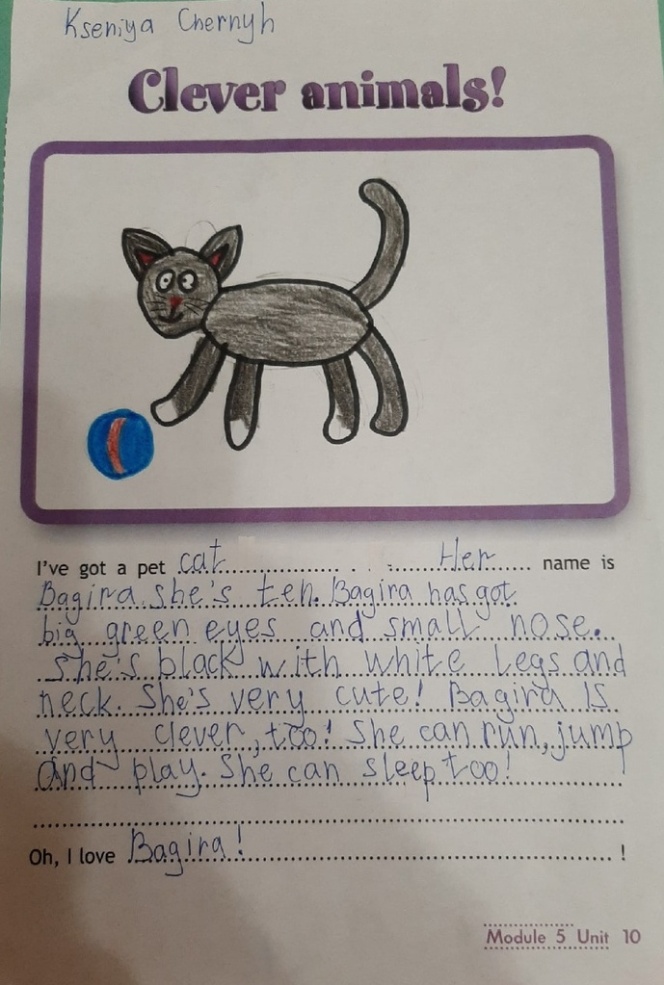 Kseniya Chernyh
Clever animals!
I've got a pet cat. Her name is
Bagira. she's ten. Bagira has got
big green eyes and small nose.
she's black with white legs and
neck. She's very cute! Bagira is
very clever, too! She can run, jump
and play. She can sleep too!
Oh, I love Bagira! !
Module 5 Unit 10